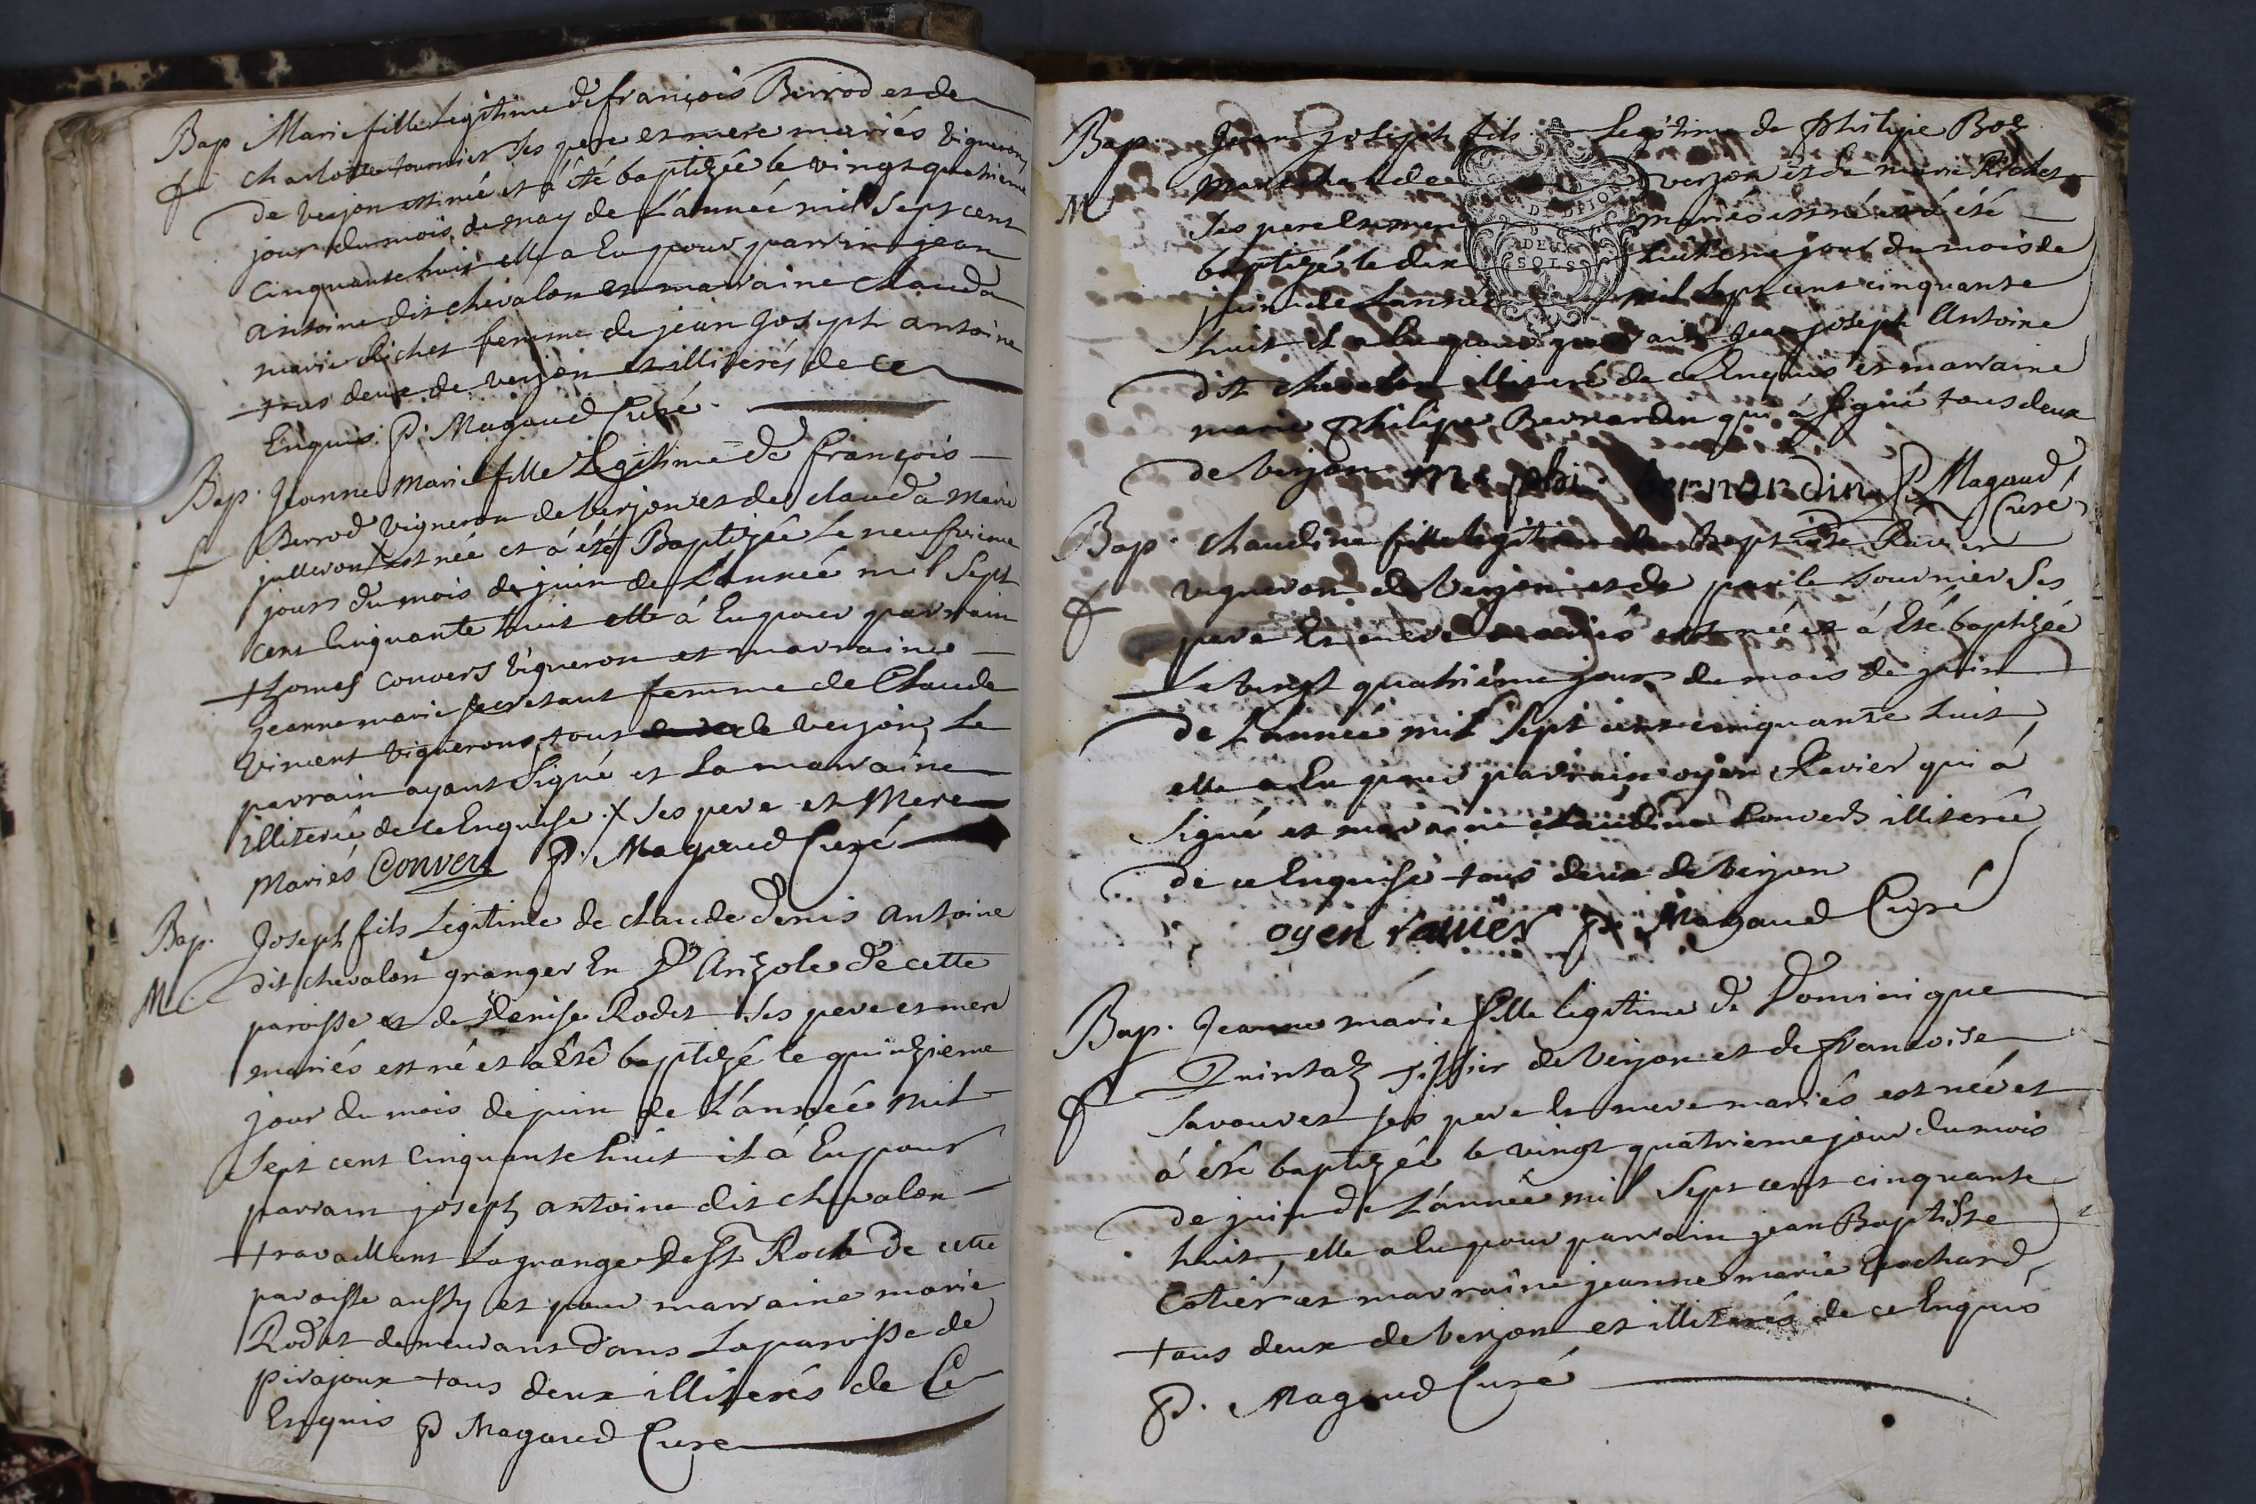 Bap Marie fille Legitime de françois Berrod et de
f charlotte tournier ses pere et mere mariés vignerons
de verjon est née et á été baptizée le vingt quatrieme
jour du mois de may de L'année mil sept cent
cinquante huit elle a Eu pour parrin jean
antoine dit chevalon et marraine clauda
marie Michet femme de jean joseph antoine
tous deux de verjon et illiterés de ce
Enquis P. Magaud Curé
Bap. Jeanne Marie fille Legitime de françois
Berrod vigneron de verjon et de clauda Marie
f julleron + est née et á été Baptizée Le neufvieme
jour du mois de juin de L'année mil Sept
cent Cinquante huit elle á Eu pour parrain
thomas convers vigneron et marraine
jeanne marie secretant femme de Claude
vincent vigneron, tous de verjon, Le
parrain ayant Signé et La marraine
illiterée de ce Enquise. + ses pere et Mere
Mariés Convert P. Magaud Curé
Bap. Joseph fils Legitime de claude denis antoine
M dit chevalon granger En D'Arizole de cette
paroisse et de Denise Rodet ses pere et mere
mariés est né et á été baptizé le quinzieme
jour du mois de juin de L'année mil
Sept cent Cinquante huit il á Eu pour
parrain joseph antoine dit chevalon
travaillant La grange de St Roch de cette
paroisse aussy et pour marraine marie
Rodet demeurant dans La paroisse de
pirajoux tous deux illiterés de Ce
Enquis P Magaud Cure
Bap. Jean joseph fils Legitime de philipe Boz
M verjon et de marie Rodet
ses pere et mere mariés est né et á été
baptizé le dix huitieme jour du mois de
juin de L'année mil sept cent cinquante
huit il a Eu pour parrain jean joseph Antoine
dit chevalon illiteré de ce Enquis et marraine
marie philipe Bernardin qui á signé tous deux
de verjon me phi. bernardin P. Magaud
Curé
Bap. claudina fille legitime de Baptiste Ravier
f vigneron de verjon et de tournier Ses
pere Et mere mariés est née et á Eté baptizée
Le vingt quatriéme jour du mois de juin
de L'année mil Sept cent cinquante huit
elle a Eu pour parrain oyen Ravier qui á
Signé et marraine claudina Convers illiterée
de ce Enquise tous deux de verjon
DE DIJO
DEUX
SOLS
oyen ravier P. Magaud Curé
Bap. Jeanne marie fille legitime de Dominique
f Quintaz tissier de verjon et de francoise
savouret ses pere Et mere mariés est née et
á été baptizée le vingt quatrieme jour du mois
de juin de L'année mil Sept cent cinquante
huit, elle a Eu pour parrain jean Baptiste
Cotier et marraine jeanne marie Cochard
tous deux de verjon et illiterés de ce Enquis
P. Magaud Curé